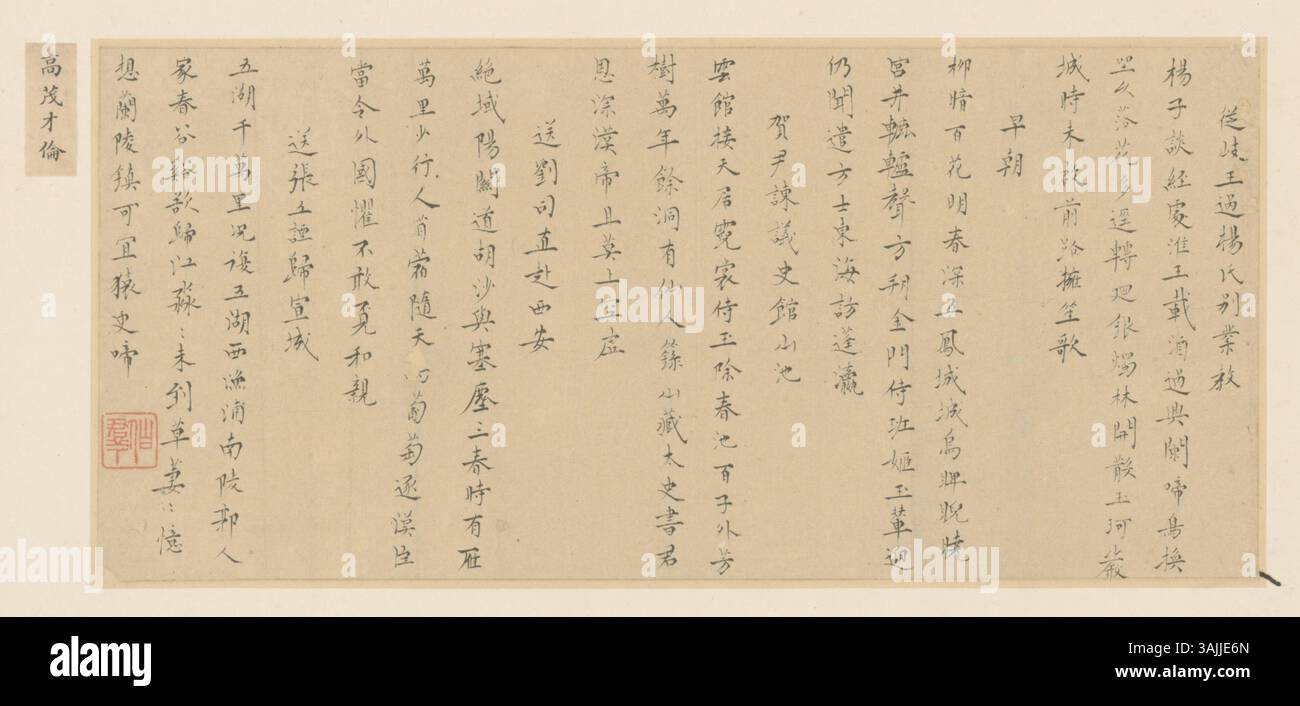 從岐王過楊氏別業教
楊子談經處淮王載酒過興闌啼鳥換
坐久落花多逕轉廻銀燭林開散玉珂嚴
城時未啟前路擁笙歌
早朝
柳暗百花明春深五鳳城城烏睥睨曉
宮井轆轤聲方朔金門侍班姬玉輦迎
仍聞遣方士東海訪蓬瀛
賀尹諫議史館山池
雲館接天居霓裳侍玉除春池百子外芳
樹萬年餘洞有仙人籙山藏太史書君
恩深漢帝且莫上空虛
送劉司直赴西安
絶域陽關道胡沙與塞塵三春時有雁
萬里少行人苜蓿隨天 葡萄逐漢臣
當令外國懼不敢覓和親
送張五諲歸宣城
五湖千萬里况復五湖西漁浦南陵郭人
家春谷谿欲歸江淼〻未到草萋〻憶
想蘭陵鎮可冝猿史啼
高茂才倫
alamy
Image ID: 3AJJE6N
www.alamy.com